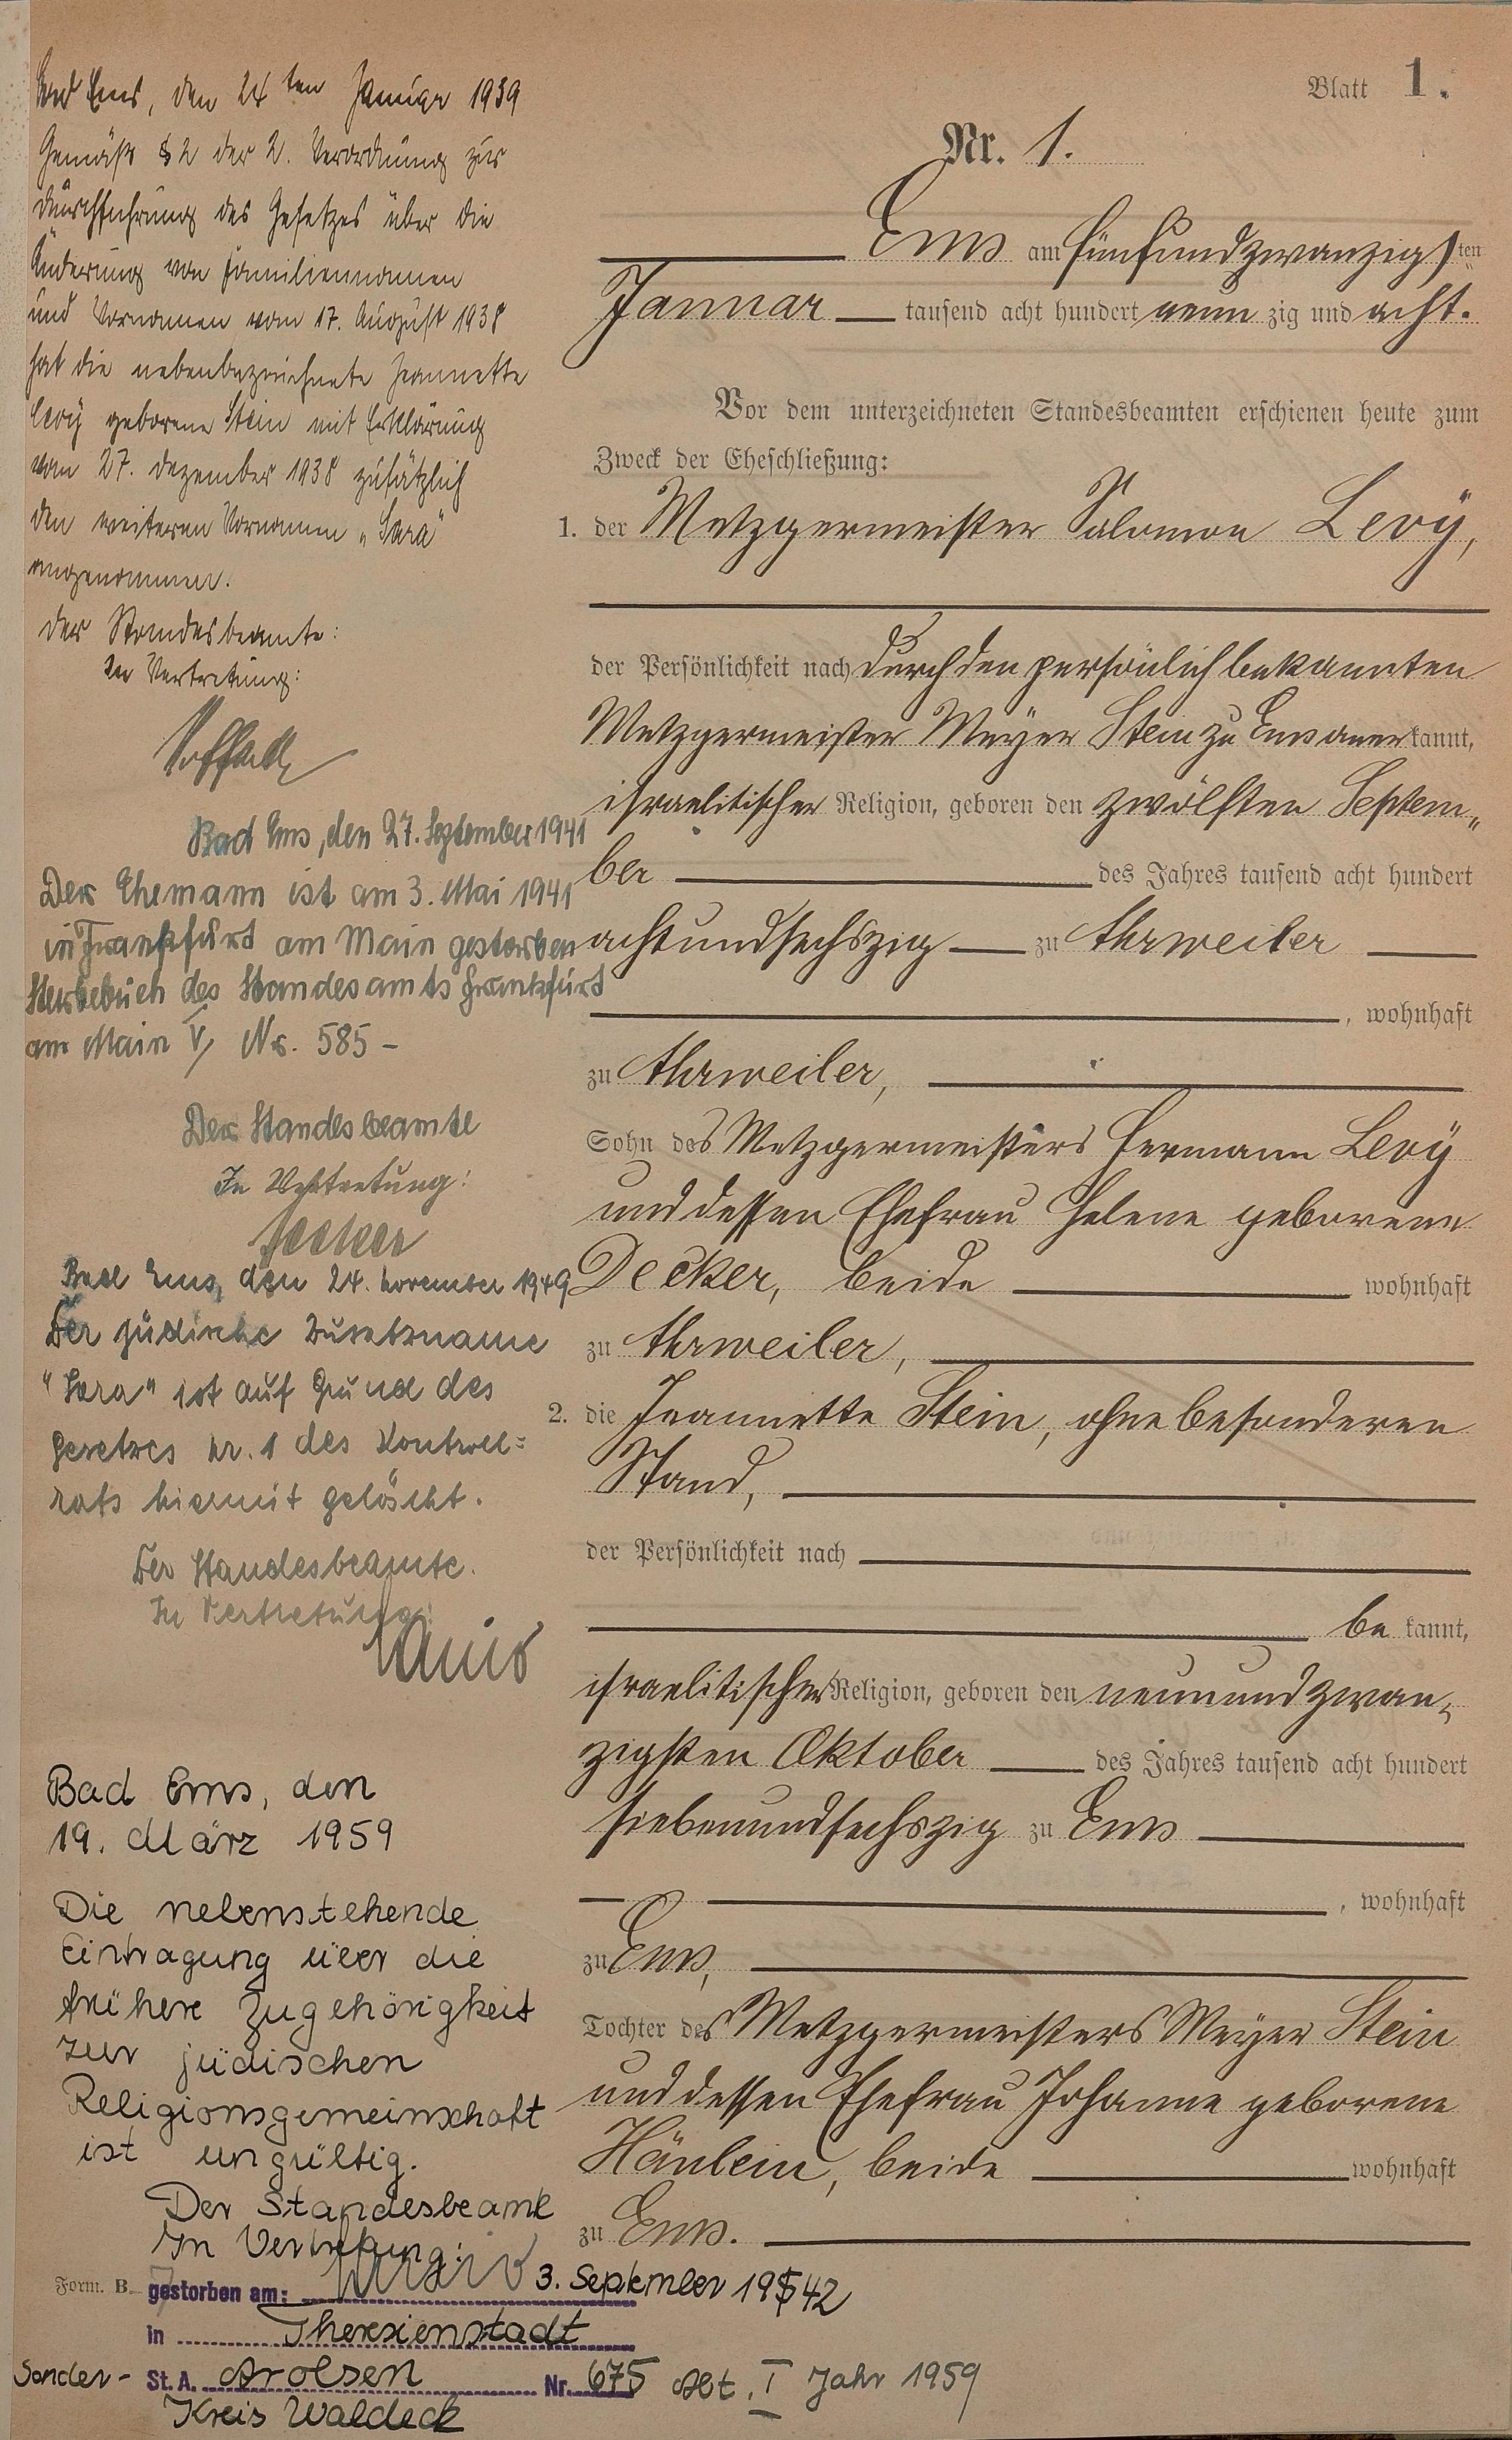 Blatt 1.
Nr. 1.
Ems am fünfundzwanzigsten
Januar tausend acht hundert neun zig und acht.
Vor dem unterzeichneten Standesbeamten erschienen heute zum
Zweck der Eheschließung:
1. der Metzgermeister Salomon Levÿ,
der Persönlichkeit nach durch den persönlich bekannten
Metzgermeister Meyer Stein zu Ems aner kannt,
israelitischer Religion, geboren den zwölften Septem„
ber des Jahres tausend acht hundert
achtundsechszig zu Ahrweiler
, wohnhaft
zu Ahrweiler,
Sohn des Metzgermeisters Hermann Levÿ
und dessen Ehefrau Helene geborene
Decker, beide wohnhaft
zu Ahrweiler,
2. die Jeannette Stein, ohne besonderen
Stand,
der Persönlichkeit nach
be kannt,
israelitischer Religion, geboren den neunundzwan„
zigsten Oktober des Jahres tausend acht hundert
siebenundsechszig zu Ems
, wohnhaft
zu Ems,
Tochter des Metzgermeisters Meyer Stein
und dessen Ehefrau Johanne geborene
Hänlein, beide wohnhaft
zu Ems.
Bad Ems, den 24ten Januar 1939
Gemäß § 2 der 2. Verordnung zur
Durchführung des Gesetzes über die
Änderung von Familiennamen
und Vornamen vom 17. August 1938
hat die nebenbezeichnete Jeannette
Levÿ geborene Stein mit Erklärung
vom 27. Dezember 1938 zusätzlich
den weiteren Vornamen „Sara"
angenommen.
Der Standesbeamte:
In Vertretung:
Bad Ems, den 27. September 1941
Der Ehemann ist am 3. Mai 1941
in Frankfurt am Main gestorben
Sterbebuch des Standesamts Frankfurt
am Main V, Nr. 585 –
Der Standesbeamte
In Vertretung:
Bad Ems, den 24. November 1949
Der jüdische Zusatzname
"Sara" ist auf Grund des
Gesetzes Nr. 1 des Kontroll=
rats hiermit gelöscht.
Der Standesbeamte.
In Vertretung:
Bad Ems, den
19. März 1959
Die nebenstehende
Eintragung über die
frühere Zugehörigkeit
zur jüdischen
Religionsgemeinschaft
ist ungültig.
Der Standesbeamte
In Vertretung:
Form. B.
gestorben am: 3. September 1942
in Theresienstadt
Sonder- St. A. Arolsen Nr. 675 Abt. I Jahr 1959
Kreis Waldeck